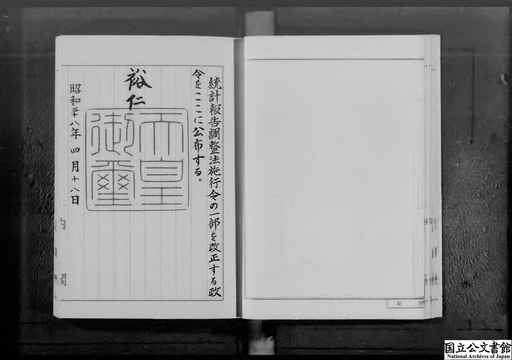 統計報告調整法施行令の一部を改正する政
令をここに公布する。
裕仁
天皇
御璽
昭和二十八年四月十八日
国立公文書館
National Archives of Japan